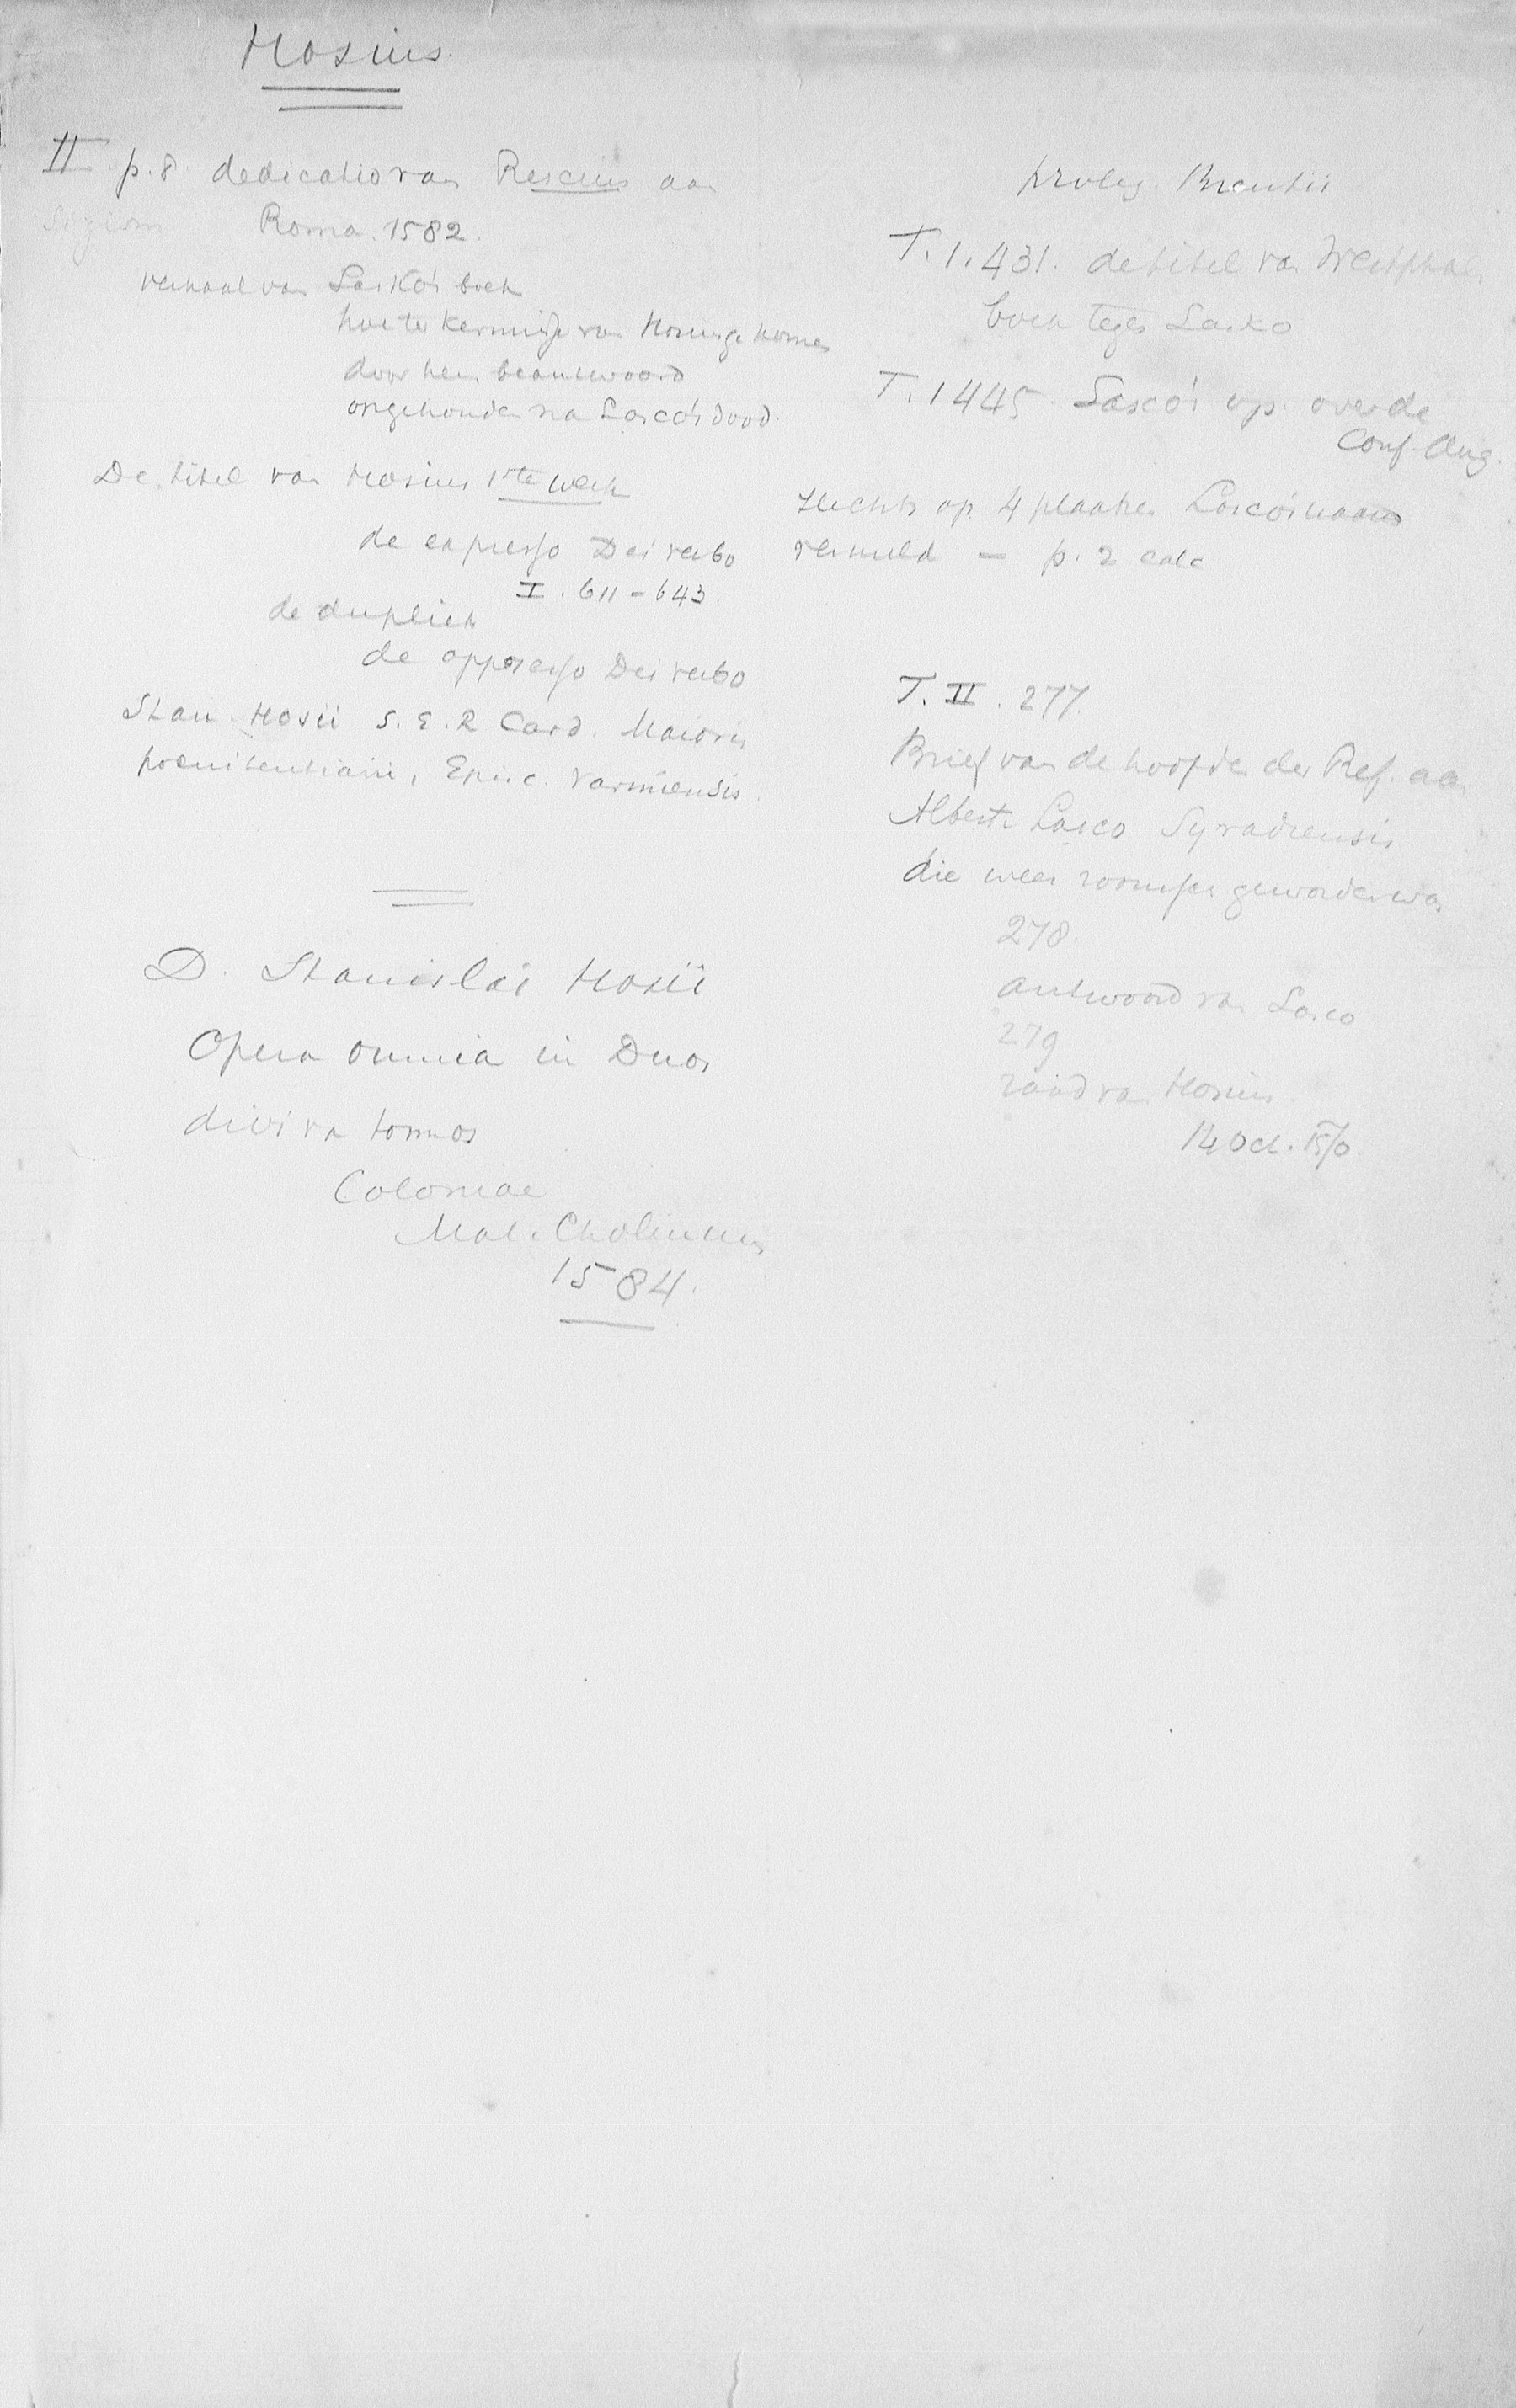 Hosius.
II p. 8 dedicatio van Rescius aan
Sigism Roma. 1582.
verhaal van Lasko's boek
hoe ter kennisse van Hosius gekomen
door hem beantwoord
ongehouden na Lasco's dood.
De titel van Hosius 1ste werk
de expresso Dei verbo
I. 611 - 643.
de dupliek
de oppresso Dei verbo
Stan. Hosii S. E. R Card. Maioris
poenitentiarii, Episc. Varmiensis.
D. Stanislai Hosii
Opera omnia in Duos
divisa tomos
Coloniae
Mat. Cholinum
1584.
proleg. Brentii
T. 1. 431. de titel van Westphals
boek tegen Lasko
T. 1 445. Lasco's op. over de
Conf. Aug.
slechts op 4 plaatsen Lasco's naam
vermeld - p. 2
T. II. 277.
Brief van de hoofden der Ref. aan
Albert Lasco Syradiensis
die weer roomsch geworden was
278.
antwoord van Lasco
279
raad van Hosius.
14 Oct. 1570.